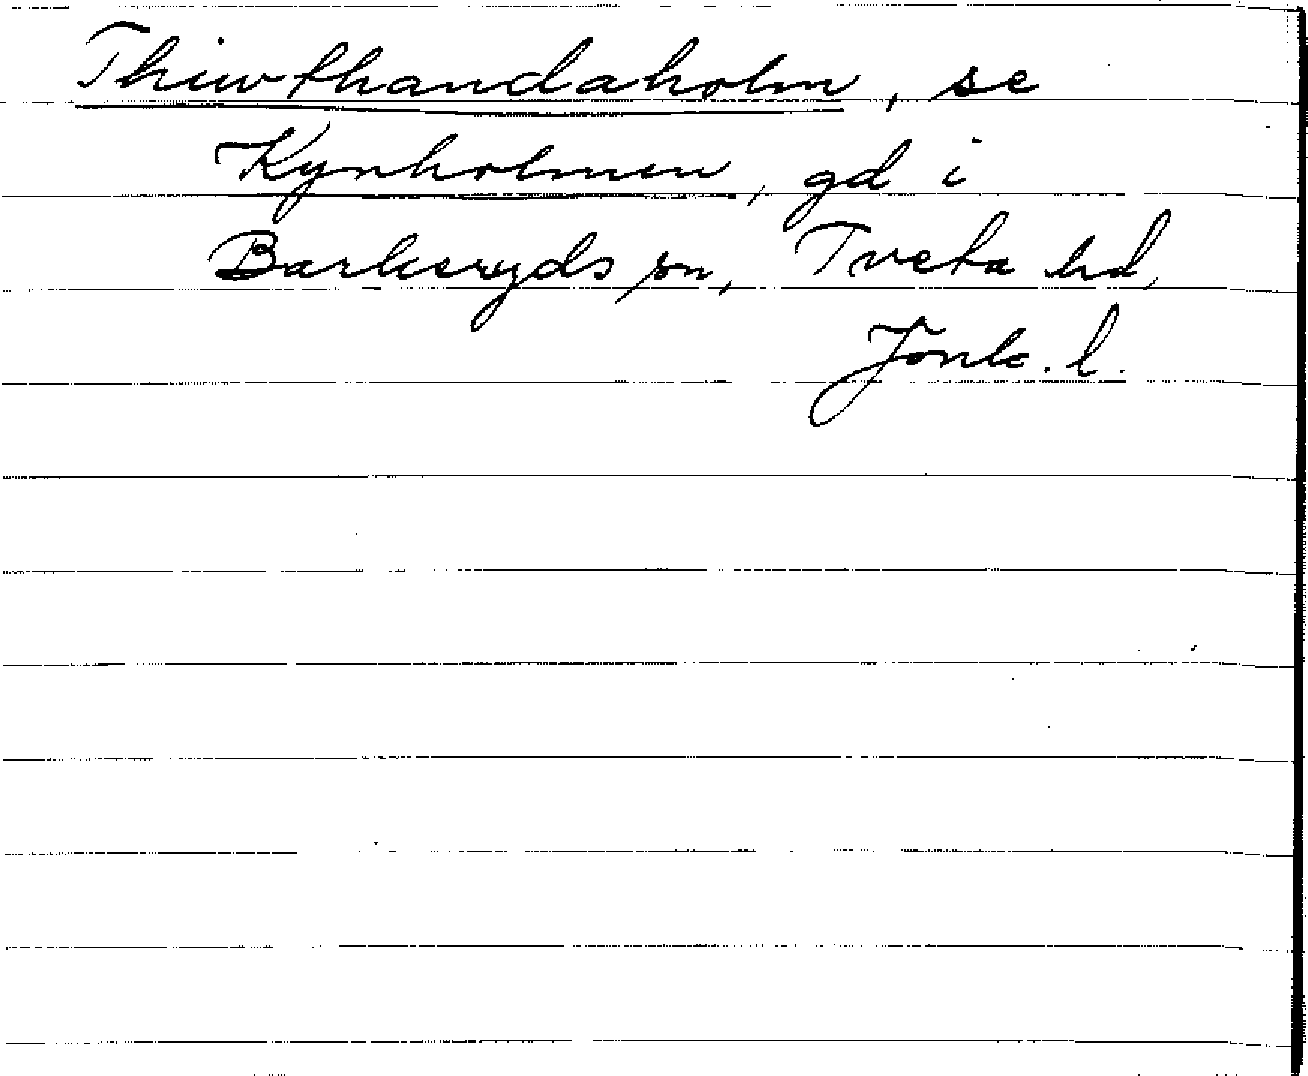 Thiwfhandaholm, se
Kynholmen, gd i
Barkeryds sn, Tveta hd,
Jönk. l.